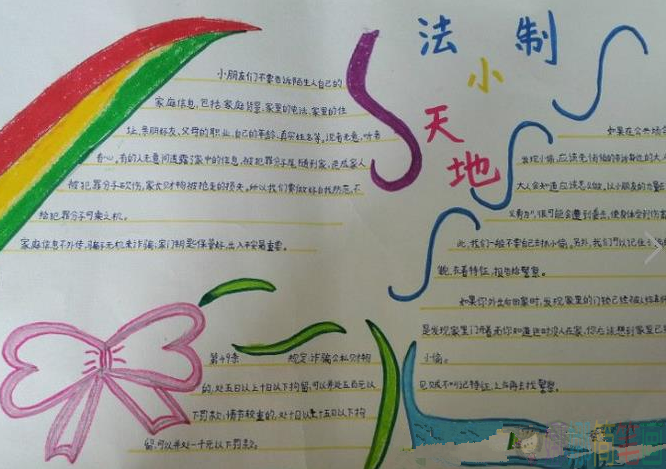 法制
小
天
地
小朋友们不要告诉陌生人自己的
家庭信息,包括家庭背景,家里的电话,家里的住
址,亲朋好友,父母的职业,自己的年龄,真实姓名等,说者无意,听者
有心,有的人无意间透露了家中的信息,被犯罪分子尾随到家,造成家人
被犯罪分子砍伤,家女财物被抢走的损失。所以我们要做好自我防范,不
给犯罪分子可乘之机。
家庭信息不外传,骗子无机来诈骗;家门钥匙保管好,出入平安最重要。
第49条 规定:诈骗公私财物
的,处五日以上十日以下拘留,可以并处五百元以
下罚款;情节较重的,处十日以上十五日以下拘
留,可以并处一千元以下罚款。
如果在公共场合
发现小偷,应该先悄悄的告诉身边的大人
大人会知道应该怎么做,以小朋友的力量
很可能会遭到歹徒,使身体受到伤害
此,我们一般不要自己去抓小偷。另外,我们可以记住小偷
貌,衣着特征,报告给警察。
如果你外出后回家时,发现家里的门锁已经被人给
是发现家里门开着而你知道这时没人在家,你应该想到家里已
小偷。
见贼不小记特征,上当再去找警察。